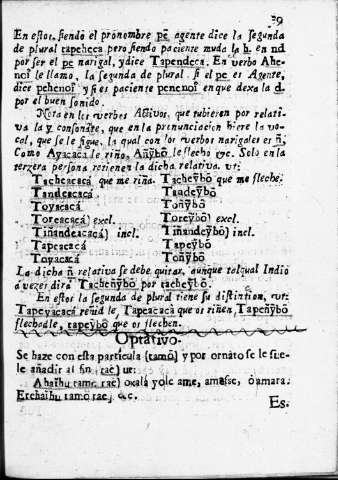 39
En estos, siendo el pronombre pẽ agente dice la segunda
de plural tapecheca pero siendo paciente muda la h. en nd
por ser el pẽ narigal, y dice Tapendeca. En verbo Ahe-
noĩ le llamo, la segunda de plural. si el pẽ es Agente,
dice pehenoĩ y si es paciente penenoĩ en que dexa la d.
por el buen sonido.
Nota en los verbos Activos, que tubieren por relati-
va la y consonãte, que en la pronunciacion hiere la vo-
cal, que se le sigue, la qual con los verbos narigales es ñ,
Como Ayacacá le riño, Añỹbõ le flecho &c. Solo en la
terzera persona retienen la dicha relativa. vt:
Tacheacacá que me riña. Tacheỹbõ que me fleche.
Tandeacacá Tandeỹbõ
Toyacacá Toñỹbõ
Toreacacá) excl. Toreỹbõ) excl.
Tiñandeacacá) incl. Tiñandeỹbõ) incl.
Tapeacacá Tapeỹbõ
Toyacacá Toñỹbõ
La dicha ñ relativa se debe quitar, aunque tal qual Indio
a vezes dirá Tacheñỹbõ por tacheỹbõ.
En estos la segunda de plural tiene su distintion, vt:
Tapeyacacá reñidle, Tapeacacá que os riñen, Tapeñỹbõ
flechadle, tapeỹbõ que os flechen.
Optativo.
Se haze con esta particula (tamõ) y por ornato se le sue-
le añadir al fin (raé) ut:
Ahaĩhu tamo raé) oxalá yo le ame, amasse, ò amara.
Erehaĩhu tamõ raé, &c.
Es.